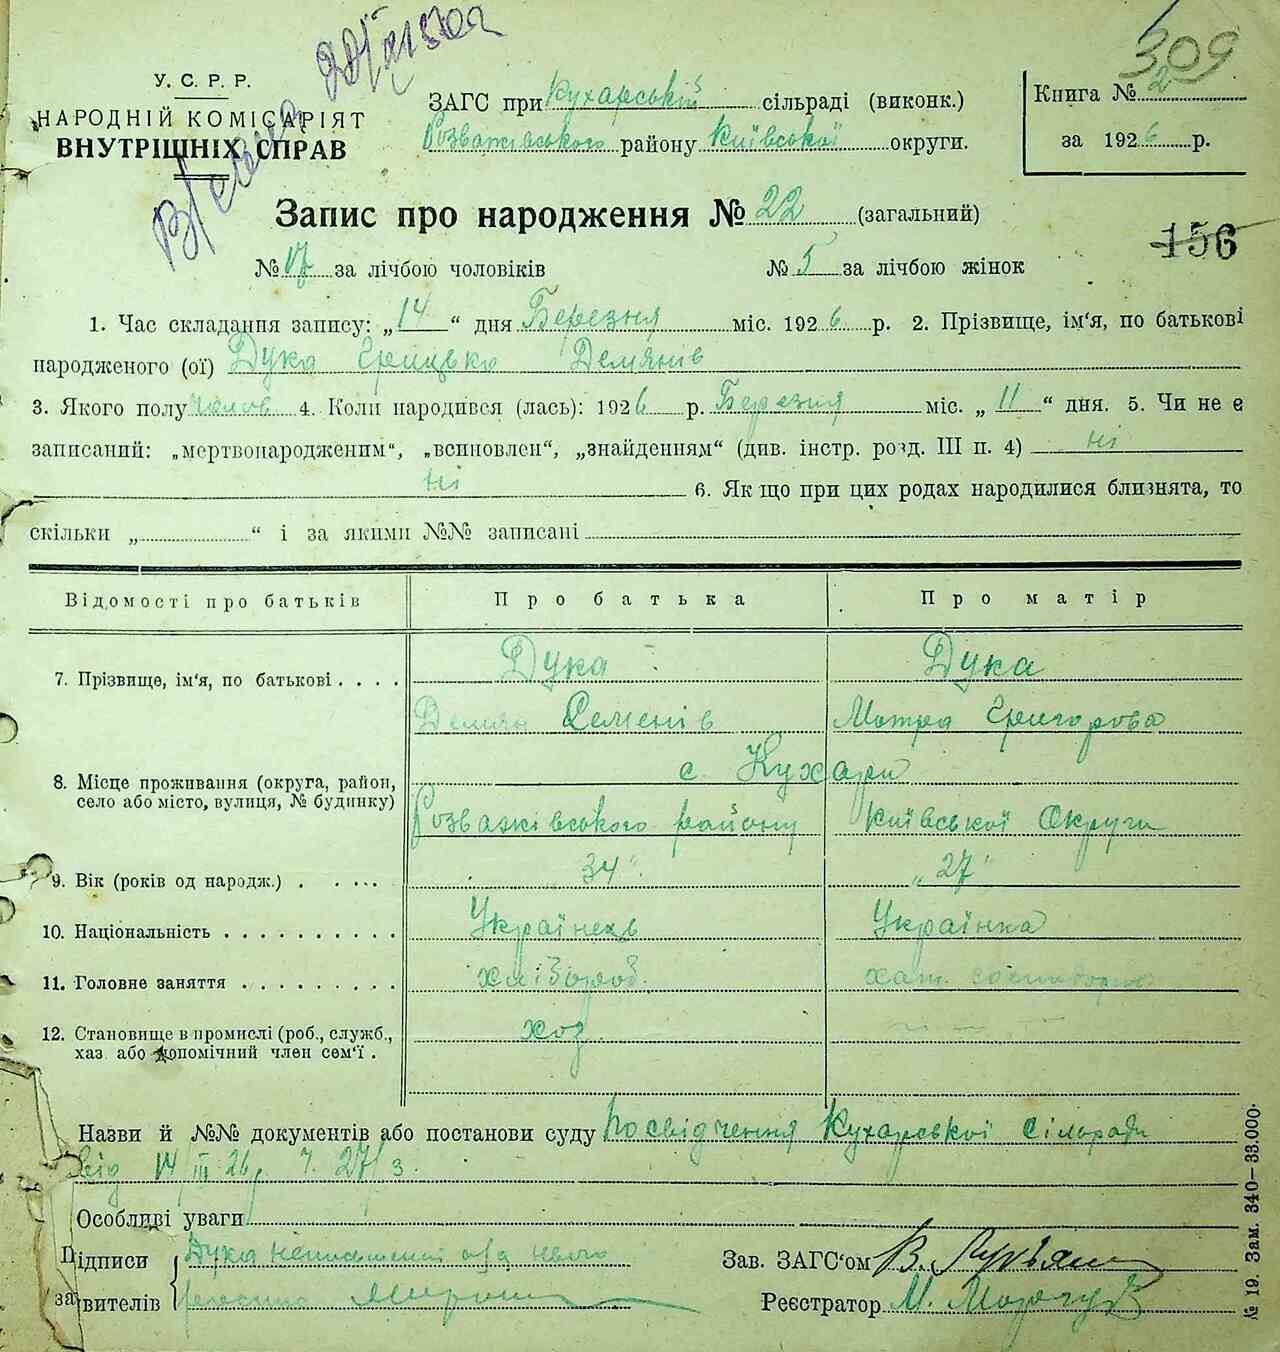 309
У. С. Р. Р.
НАРОДНІЙ КОМІСАРІЯТ
ВНУТРІШНІХ СПРАВ
ЗАГС при Кухарській сільраді (виконк.)
Розважівського району Київської округи.
Книга № 2
за 1926 р.
Запис про народження № 22 (загальний)
156
№ 17 за лічбою чоловіків № 5 за лічбою жінок
1. Час складання запису: „14“ дня Березня міс. 1926 р. 2. Прізвище, ім‘я, по батькові
народженого (ої) Дука Грицько Демянів
3. Якого полу чолов 4. Коли народився (лась): 1926 р. Березня міс. „11“ дня. 5. Чи не є
записаний: „мертвонародженим“, „всиновлен“, „знайденням“ (див. інстр. розд. III п. 4) ні
ні 6. Як що при цих родах народилися близнята, то
скільки „ “ і за якими №№ записані
Відомості про батьків Про батька Про матір
7. Прізвище, ім‘я, по батькові . . . . Дука Дука
Демян Семенів Мотра Григорова
8. Місце проживання (округа, район, село або місто, вулиця, № будинку) с. Кухари
Розважівського району Київської Округи
9. Вік (років од народж.) . . . . . „34“ „27“
10. Національність . . . . . . . . . . Українець Українка
11. Головне заняття . . . . . . . . . хлібороб. хат.
12. Становище в промислі (роб., служб., хаз або допомічний член сем‘ї . хоз
Назви й №№ документів або постанови суду Посвідчення Кухарської Сільради
від 14/III 26 р. ч. 27/з.
Особливі уваги
Підписи Дука неписьменний а за нього
заявителів
Зав. ЗАГС‘ом В.
Реєстратор М.
№ 19. Зам. 340—33.000.